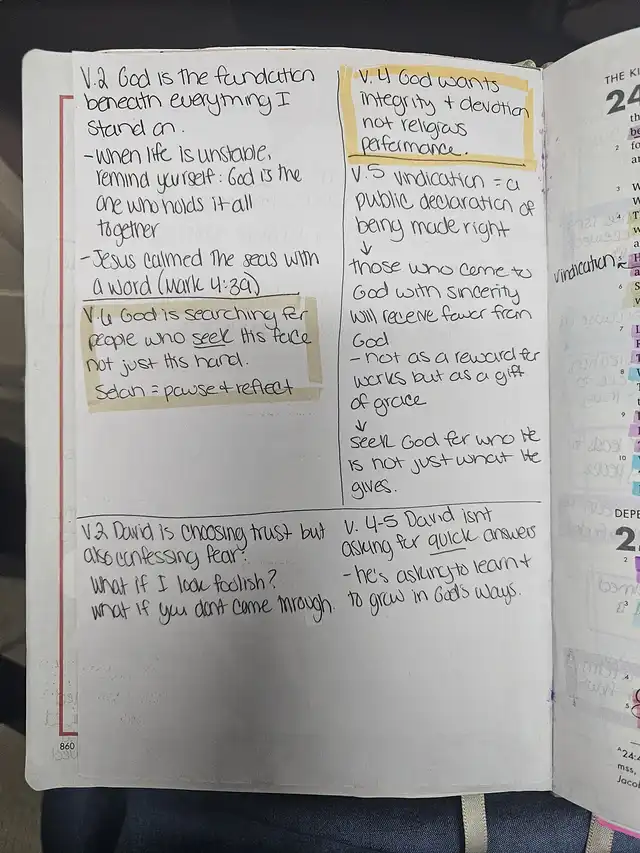 V.2 God is the foundation
beneath everything I
stand on.
- When life is unstable,
remind yourself: God is the
one who holds it all
together
- Jesus calmed the seas with
a word (Mark 4:39)
V.6 God is searching for
people who seek His face
not just His hand.
Selah = pause + reflect
V.4 God wants
integrity + devotion
not religious
performance.
V.5 vindication = a
public declaration of
being made right
↓
those who come to
God with sincerity
will receive favor from
God
- not as a reward for
works but as a gift
of grace
↓
seek God for who He
is not just what He
gives.
V.2 David is choosing trust but
also confessing fear:
What if I look foolish?
What if you dont come through.
V. 4-5 David isnt
asking for quick answers
- he's asking to learn +
to grow in God's ways.
860
THE KI
24
2
3
vindication
6
7
8
9
10
DEPE
2
2
3
4
5
24:
mss,
Jacob